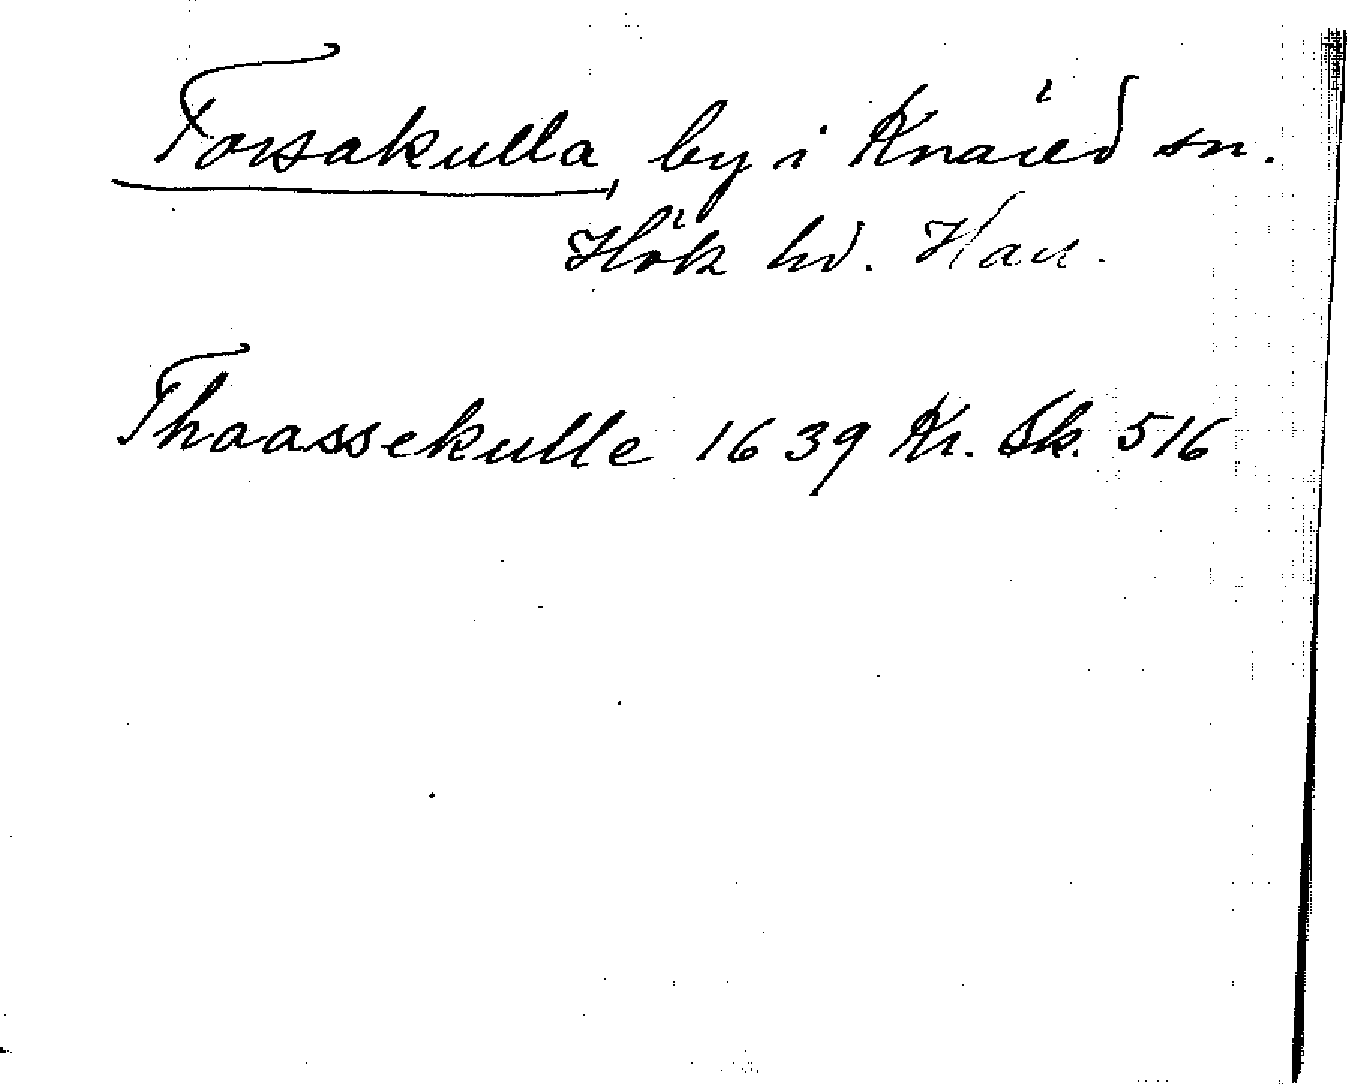 Torsakulla, by i Knäred sn.
Hök hd. Hall.
Thaassekulle 1639 Kr. Sk. 516